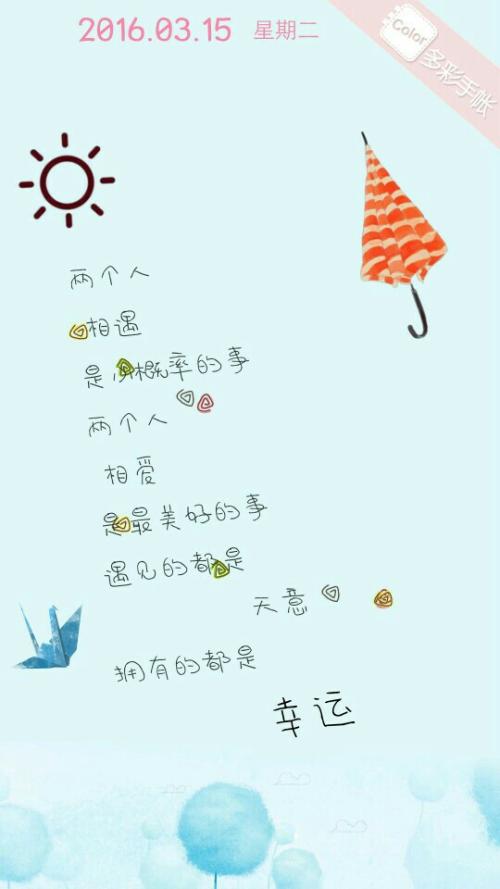 2016.03.15 星期二
Color 多彩手帐
两个人
相遇
是小概率的事
两个人
相爱
是最美好的事
遇见的都是
天意
拥有的都是
幸运